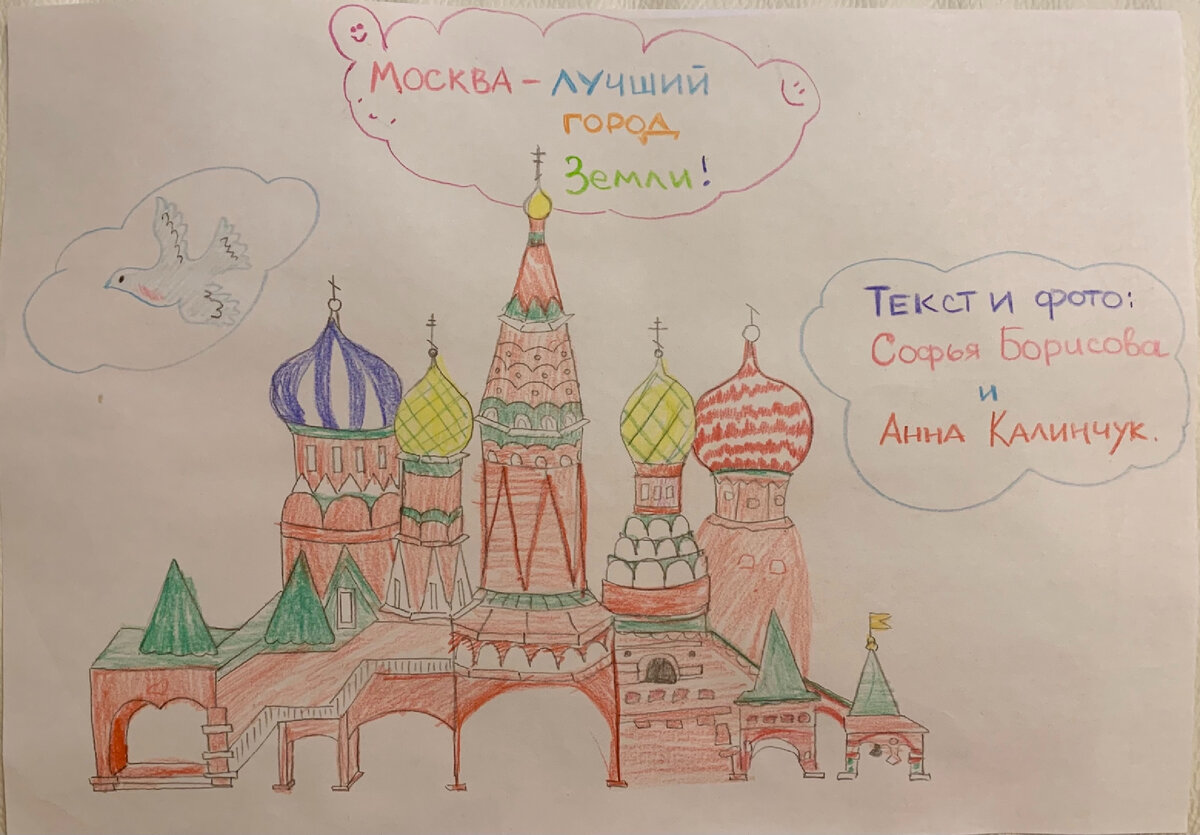 Москва – лучший
город
Земли!
Текст и фото:
Софья Борисова
и
Анна Калинчук.